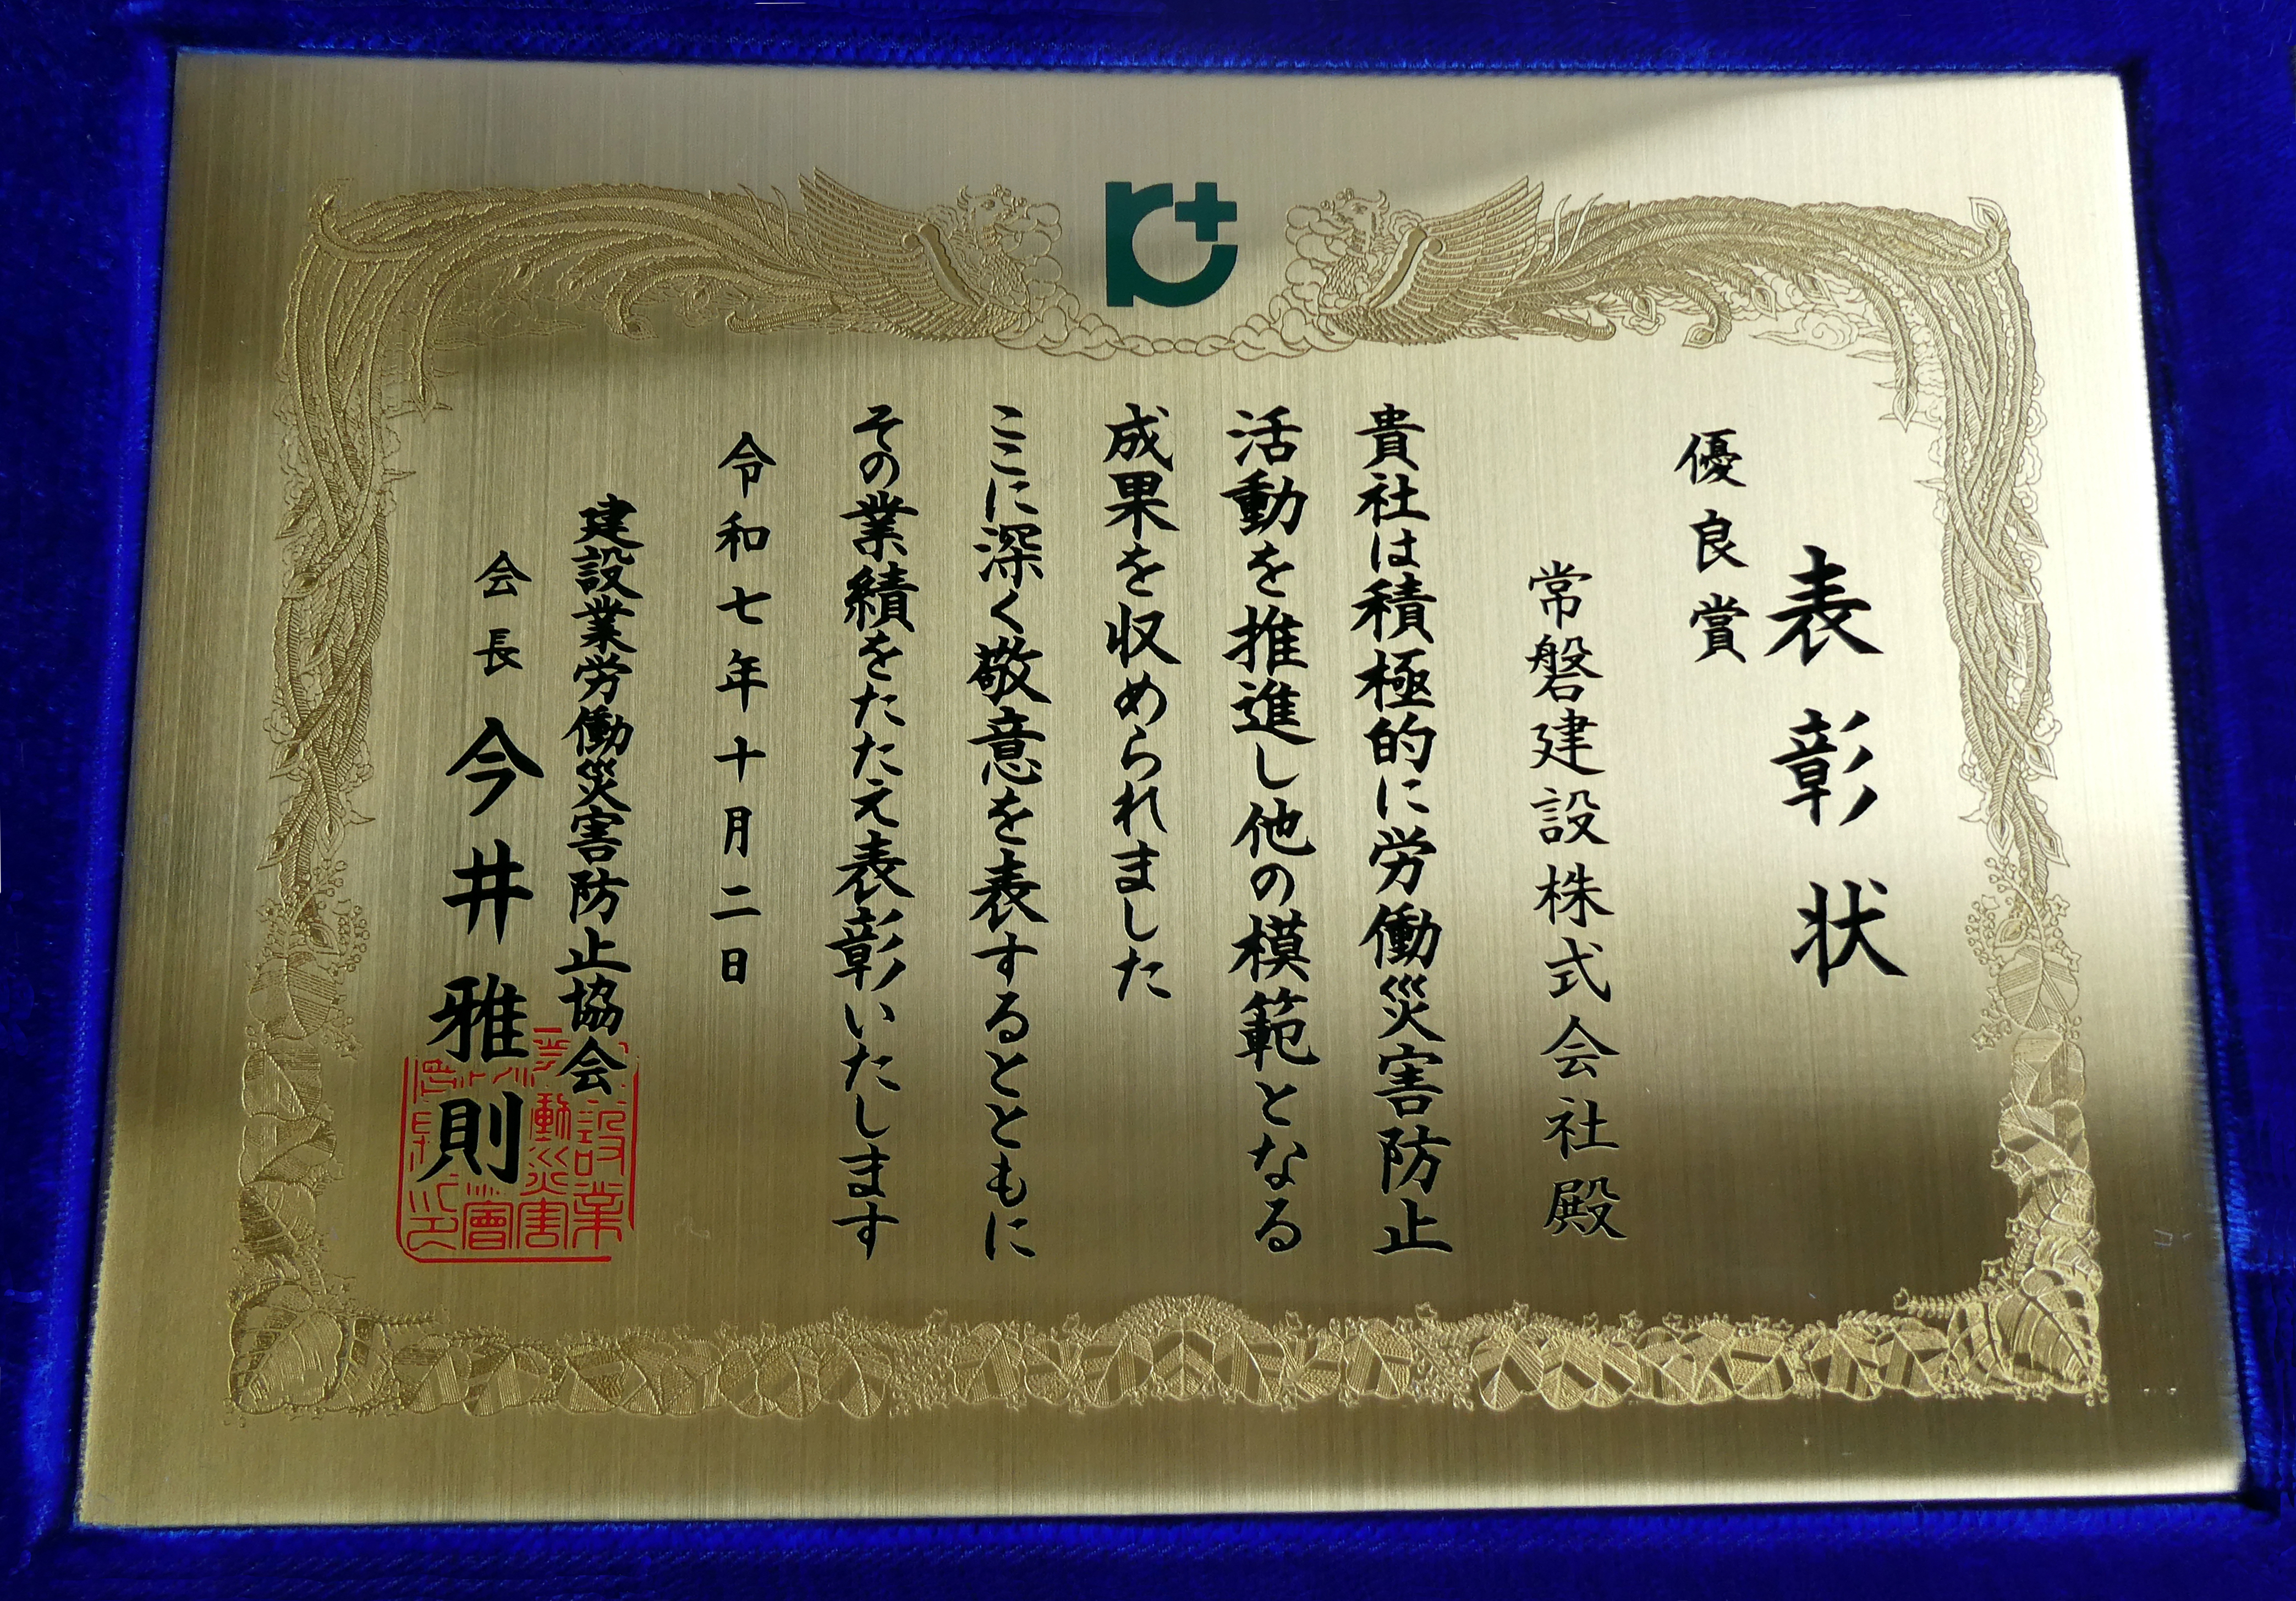 表彰状
優良賞
常磐建設株式会社殿
貴社は積極的に労働災害防止
活動を推進し他の模範となる
成果を収められました
ここに深く敬意を表するとともに
その業績をたたえ表彰いたします
令和七年十月二日
建設業労働災害防止協会
会長 今井雅則